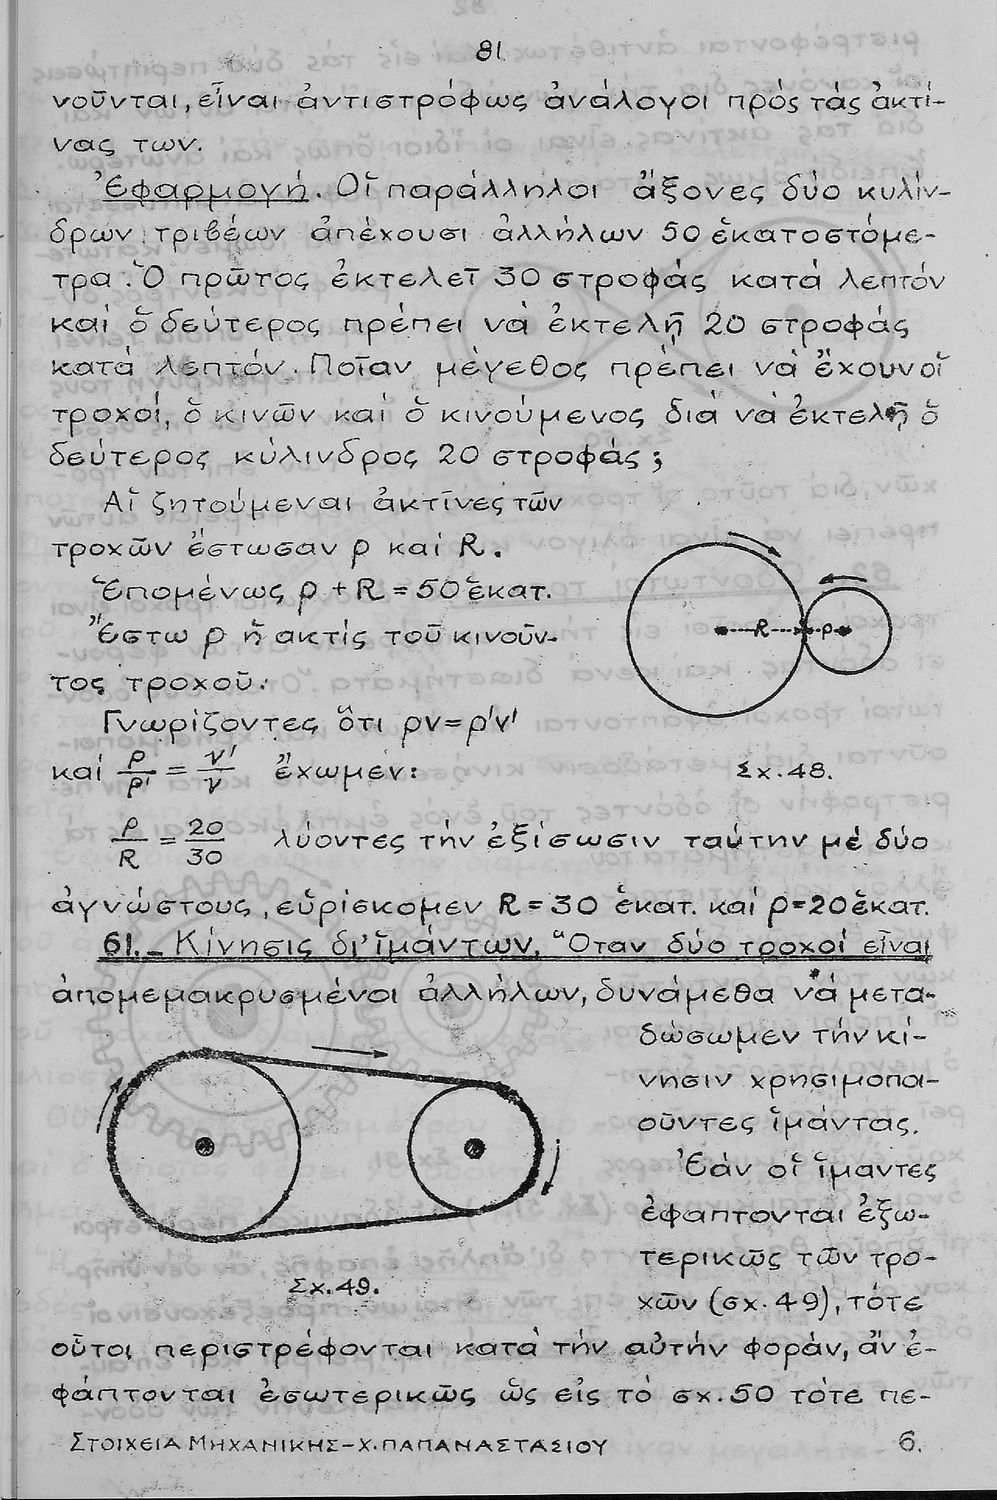 81
νοῦνται, εἶναι ἀντιστρόφως ἀνάλογοι πρός τάς ἀκτί-
νας των.
Ἐφαρμογή. Οἵ παράλληλοι ἄξονες δύο κυλίν-
δρων τριβέων ἀπέχουσι ἀλλήλων 50 ἑκατοστόμε-
τρα. Ὁ πρῶτος ἐκτελεῖ 30 στροφάς κατά λεπτόν
καί ὅ δεύτερος πρέπει νά ἐκτελῇ 20 στροφάς
κατά λεπτόν. Ποῖαν μέγεθος πρέπει νά ἔχουν οἵ
τροχοί, ὅ κινῶν καί ὅ κινούμενος διά νά ἐκτελῇ ὅ
δεύτερος κύλινδρος 20 στροφάς;
Αἵ ζητούμεναι ἀκτῖνες τῶν
τροχῶν ἔστωσαν ρ καί R.
Ἑπομένως ρ + R = 50 ἑκατ.
Ἔστω ρ ἥ ἀκτίς τοῦ κινοῦν-
τος τροχοῦ.
Γνωρίζοντες ὅτι ρν = ρ'ν'
καί ρ/ρ' = ν'/ν ἔχωμεν:
R ρ
Σχ. 48.
ρ/R = 20/30 λύοντες τήν ἐξίσωσιν ταύτην μέ δύο
ἀγνώστους, εὕρίσκομεν R = 30 ἑκατ. καί ρ = 20 ἑκατ.
61.- Κίνησις δι' ἵμάντων. Ὅταν δύο τροχοί εἶναι
ἀπομεμακρυσμένοι ἀλλήλων, δυνάμεθα νά μετα-
δώσωμεν τήν κί-
νησιν χρησιμοποι-
οῦντες ἵμάντας.
Ἐάν οἵ ἵμαντες
ἐφαπτονται ἐξω-
τερικῶς τῶν τρο-
χῶν (σχ. 49), τότε
Σχ. 49.
οὗτοι περιστρέφονται κατά τήν αὐτήν φοράν, ἄν ἐ-
φάπτονται ἐσωτερικῶς ὥς εἰς τό σχ. 50 τότε πε-
ΣΤΟΙΧΕΙΑ ΜΗΧΑΝΙΚΗΣ - Χ. ΠΑΠΑΝΑΣΤΑΣΙΟΥ 6.